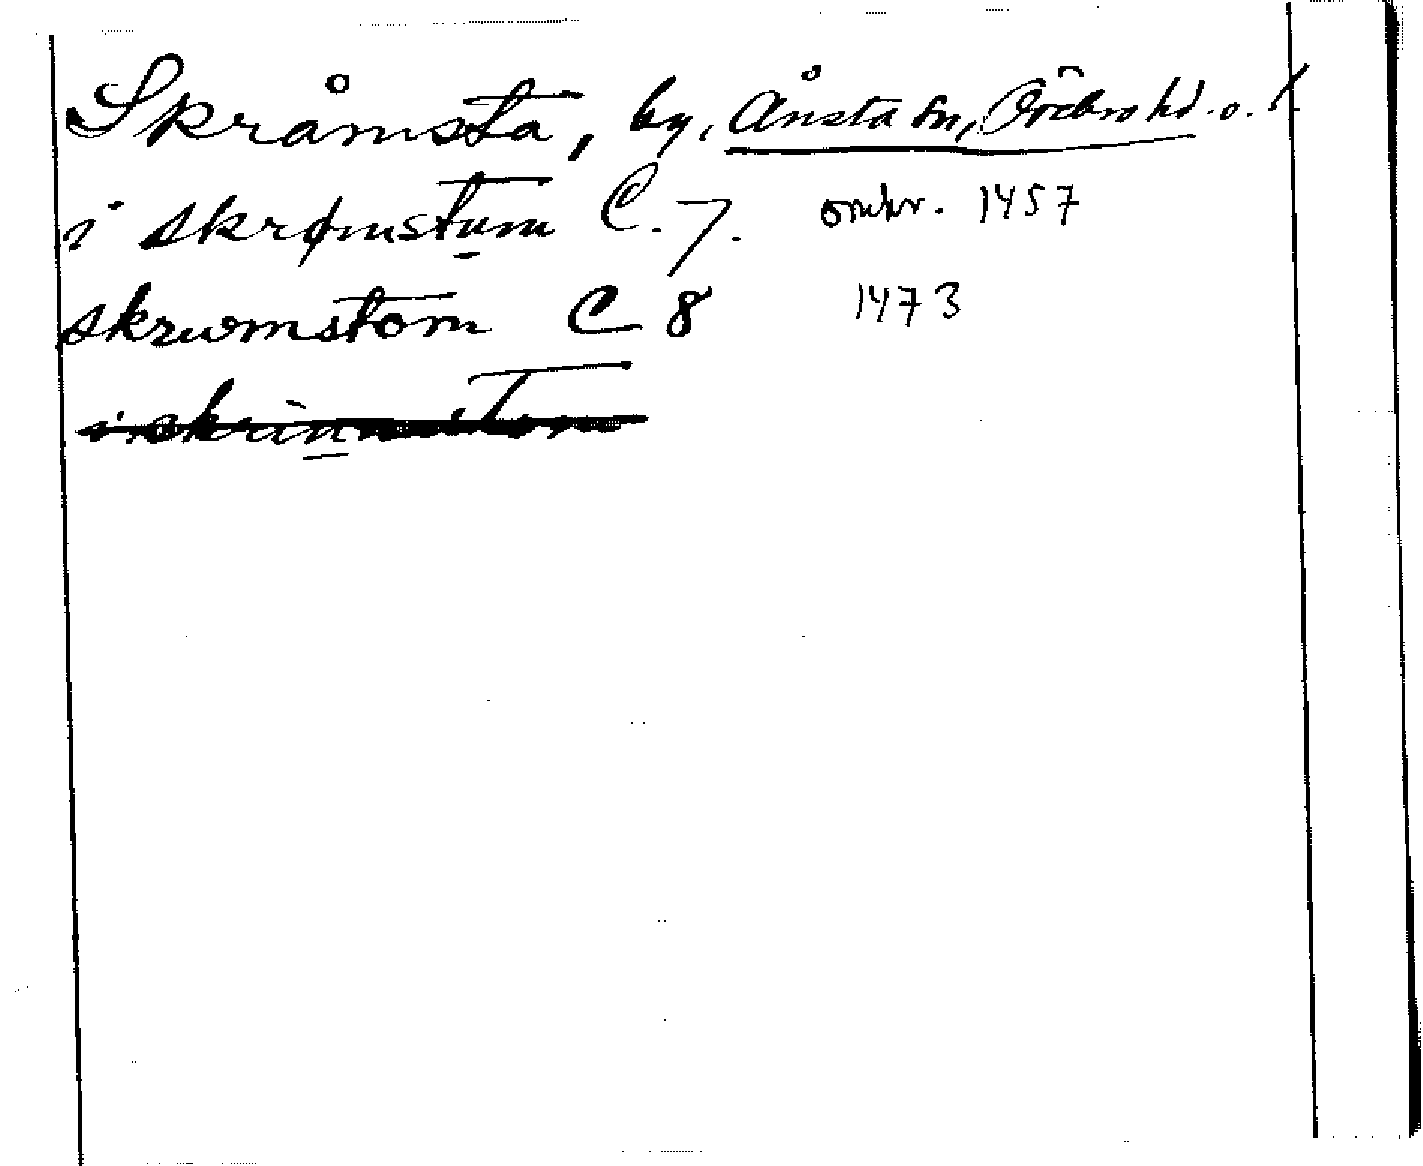 Skråmsta, by, Ånsta sn, Örebro hd. o. l.
i skrømstum C. 7. omkr. 1457
skrwmstom C 8 1473